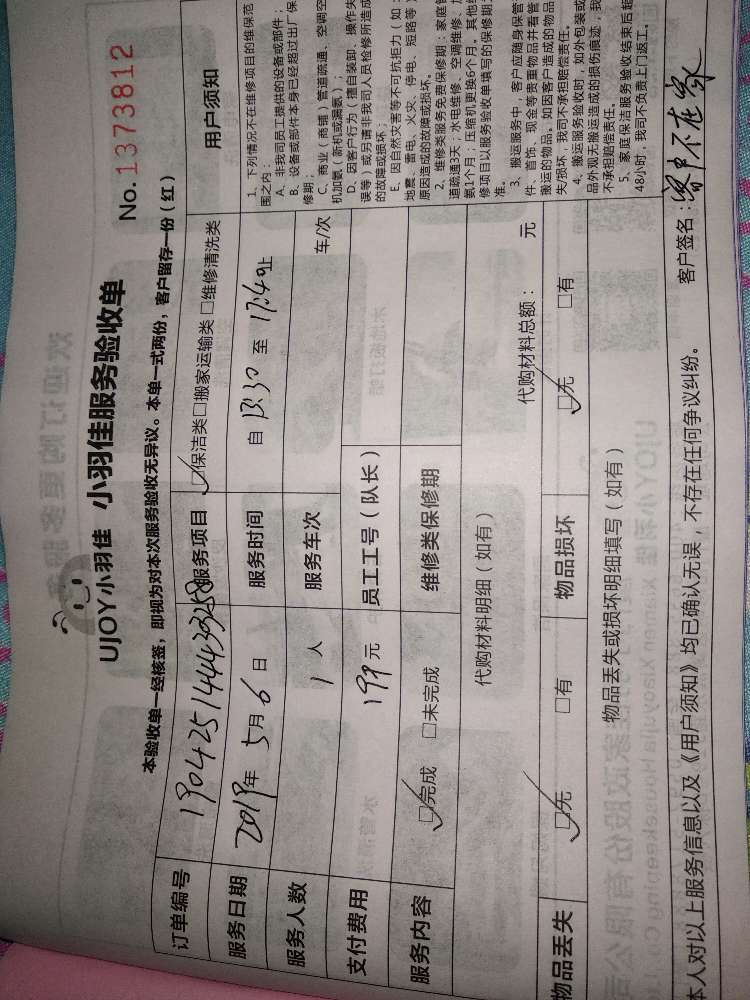 UJOY小羽佳 小羽佳服务验收单
No.1373812
本验收单一经核签，即视为对本次服务验收无异议。本单一式两份，客户留存一份（红）
订单编号 190425144439258 服务项目 保洁类 □搬家运输类 □维修清洗类
服务日期 2019年 5月 6日 服务时间 自 13:30 至 17:40止
服务人数 1 人 服务车次 车/次
支付费用 199元 员工工号（队长）
服务内容 □完成 □未完成 维修类保修期
代购材料明细（如有） 代购材料总额： 元
物品丢失 □无 □有 物品损坏 □无 □有
物品丢失或损坏明细填写（如有）
用户须知
1、下列情况不在维修项目的维保范
围之内：
A、非我司员工提供的设备或部件；
B、设备或部件本身已经超过出厂保
修期；
C、商业（商铺）管道疏通、空调空
机加氨（新机或漏氨）；
D、因客户行为（擅自装卸、操作失
误等）或另请非我司人员检修所造成
的故障或损坏；
E、因自然灾害等不可抗拒力（如：
地震、雷电、火灾、停电、短路等）
原因造成的故障或损坏。
2、维修类服务免费保修期：家庭管
道疏通3天；水电维修、空调维修、加
氨1个月；压缩机更换6个月。其他维
修项目以服务验收单填写的保修期为
准。
3、搬运服务中，客户应随身保管
件、首饰、现金等贵重物品并看管
搬运的物品。如因客户造成的物品
失/损坏，我司不承担赔偿责任。
4、搬运服务验收时，如外包装或
品外观无搬运造成的损伤痕迹，我
不承担赔偿责任。
5、家庭保洁服务验收结束后超
48小时，我司不负责上门返工。
本人对以上服务信息以及《用户须知》均已确认无误，不存在任何争议纠纷。
客户签名：客户不在家